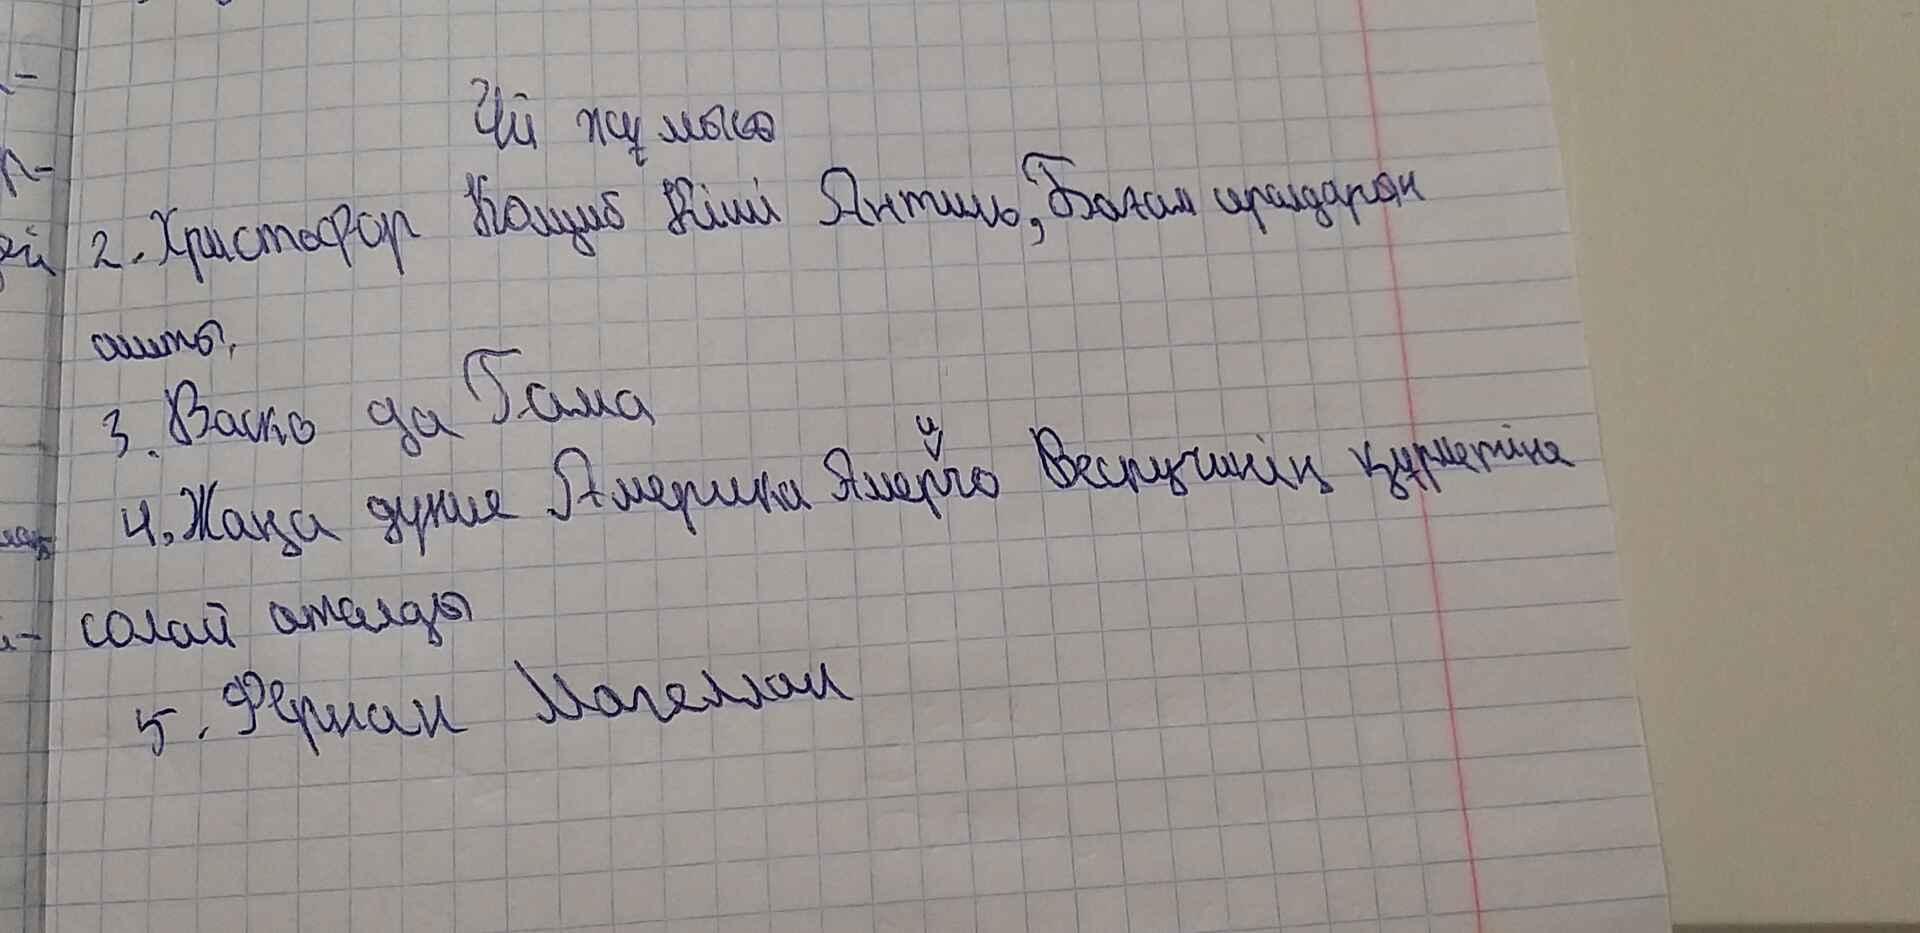 Үй жұмысы
2. Христофор Колумб Кіші Антиль, Багам аралдарын
ашты.
3. Васко да Гама
4. Жаңа дүние Америка Америго Веспучинің құрметіне
солай аталды
5. Фернан Магеллан